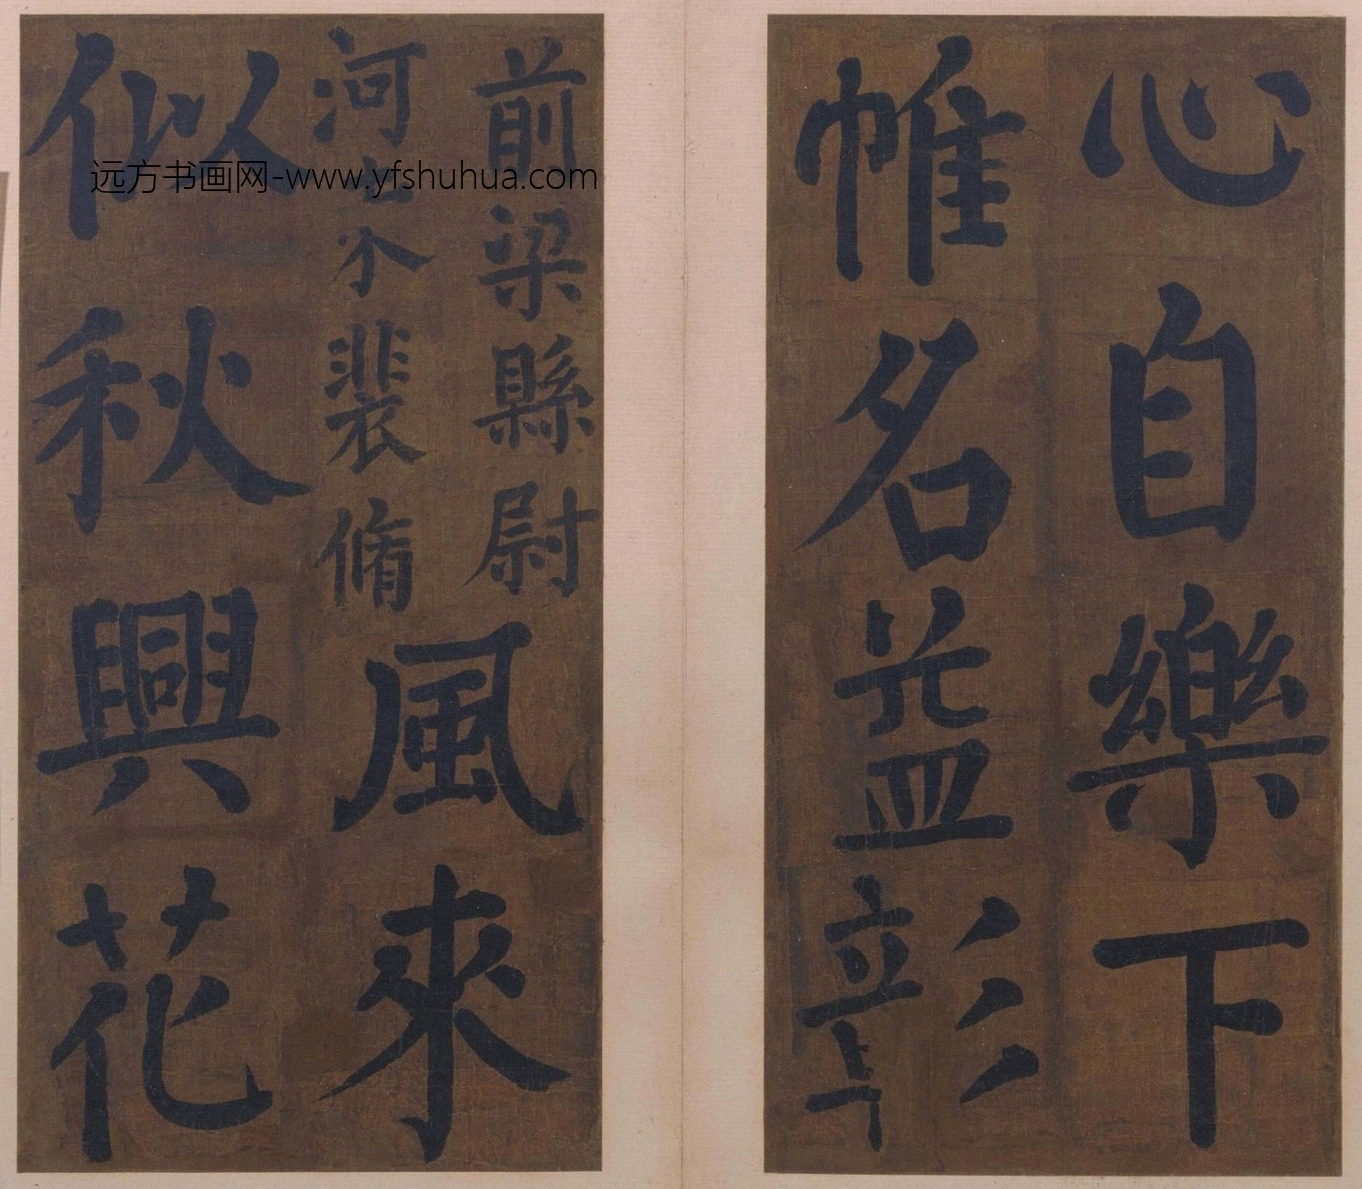 心自樂下
帷名益彰
前梁縣尉
河東裴脩
風來
似秋興花
远方书画网-www.yfshuhua.com